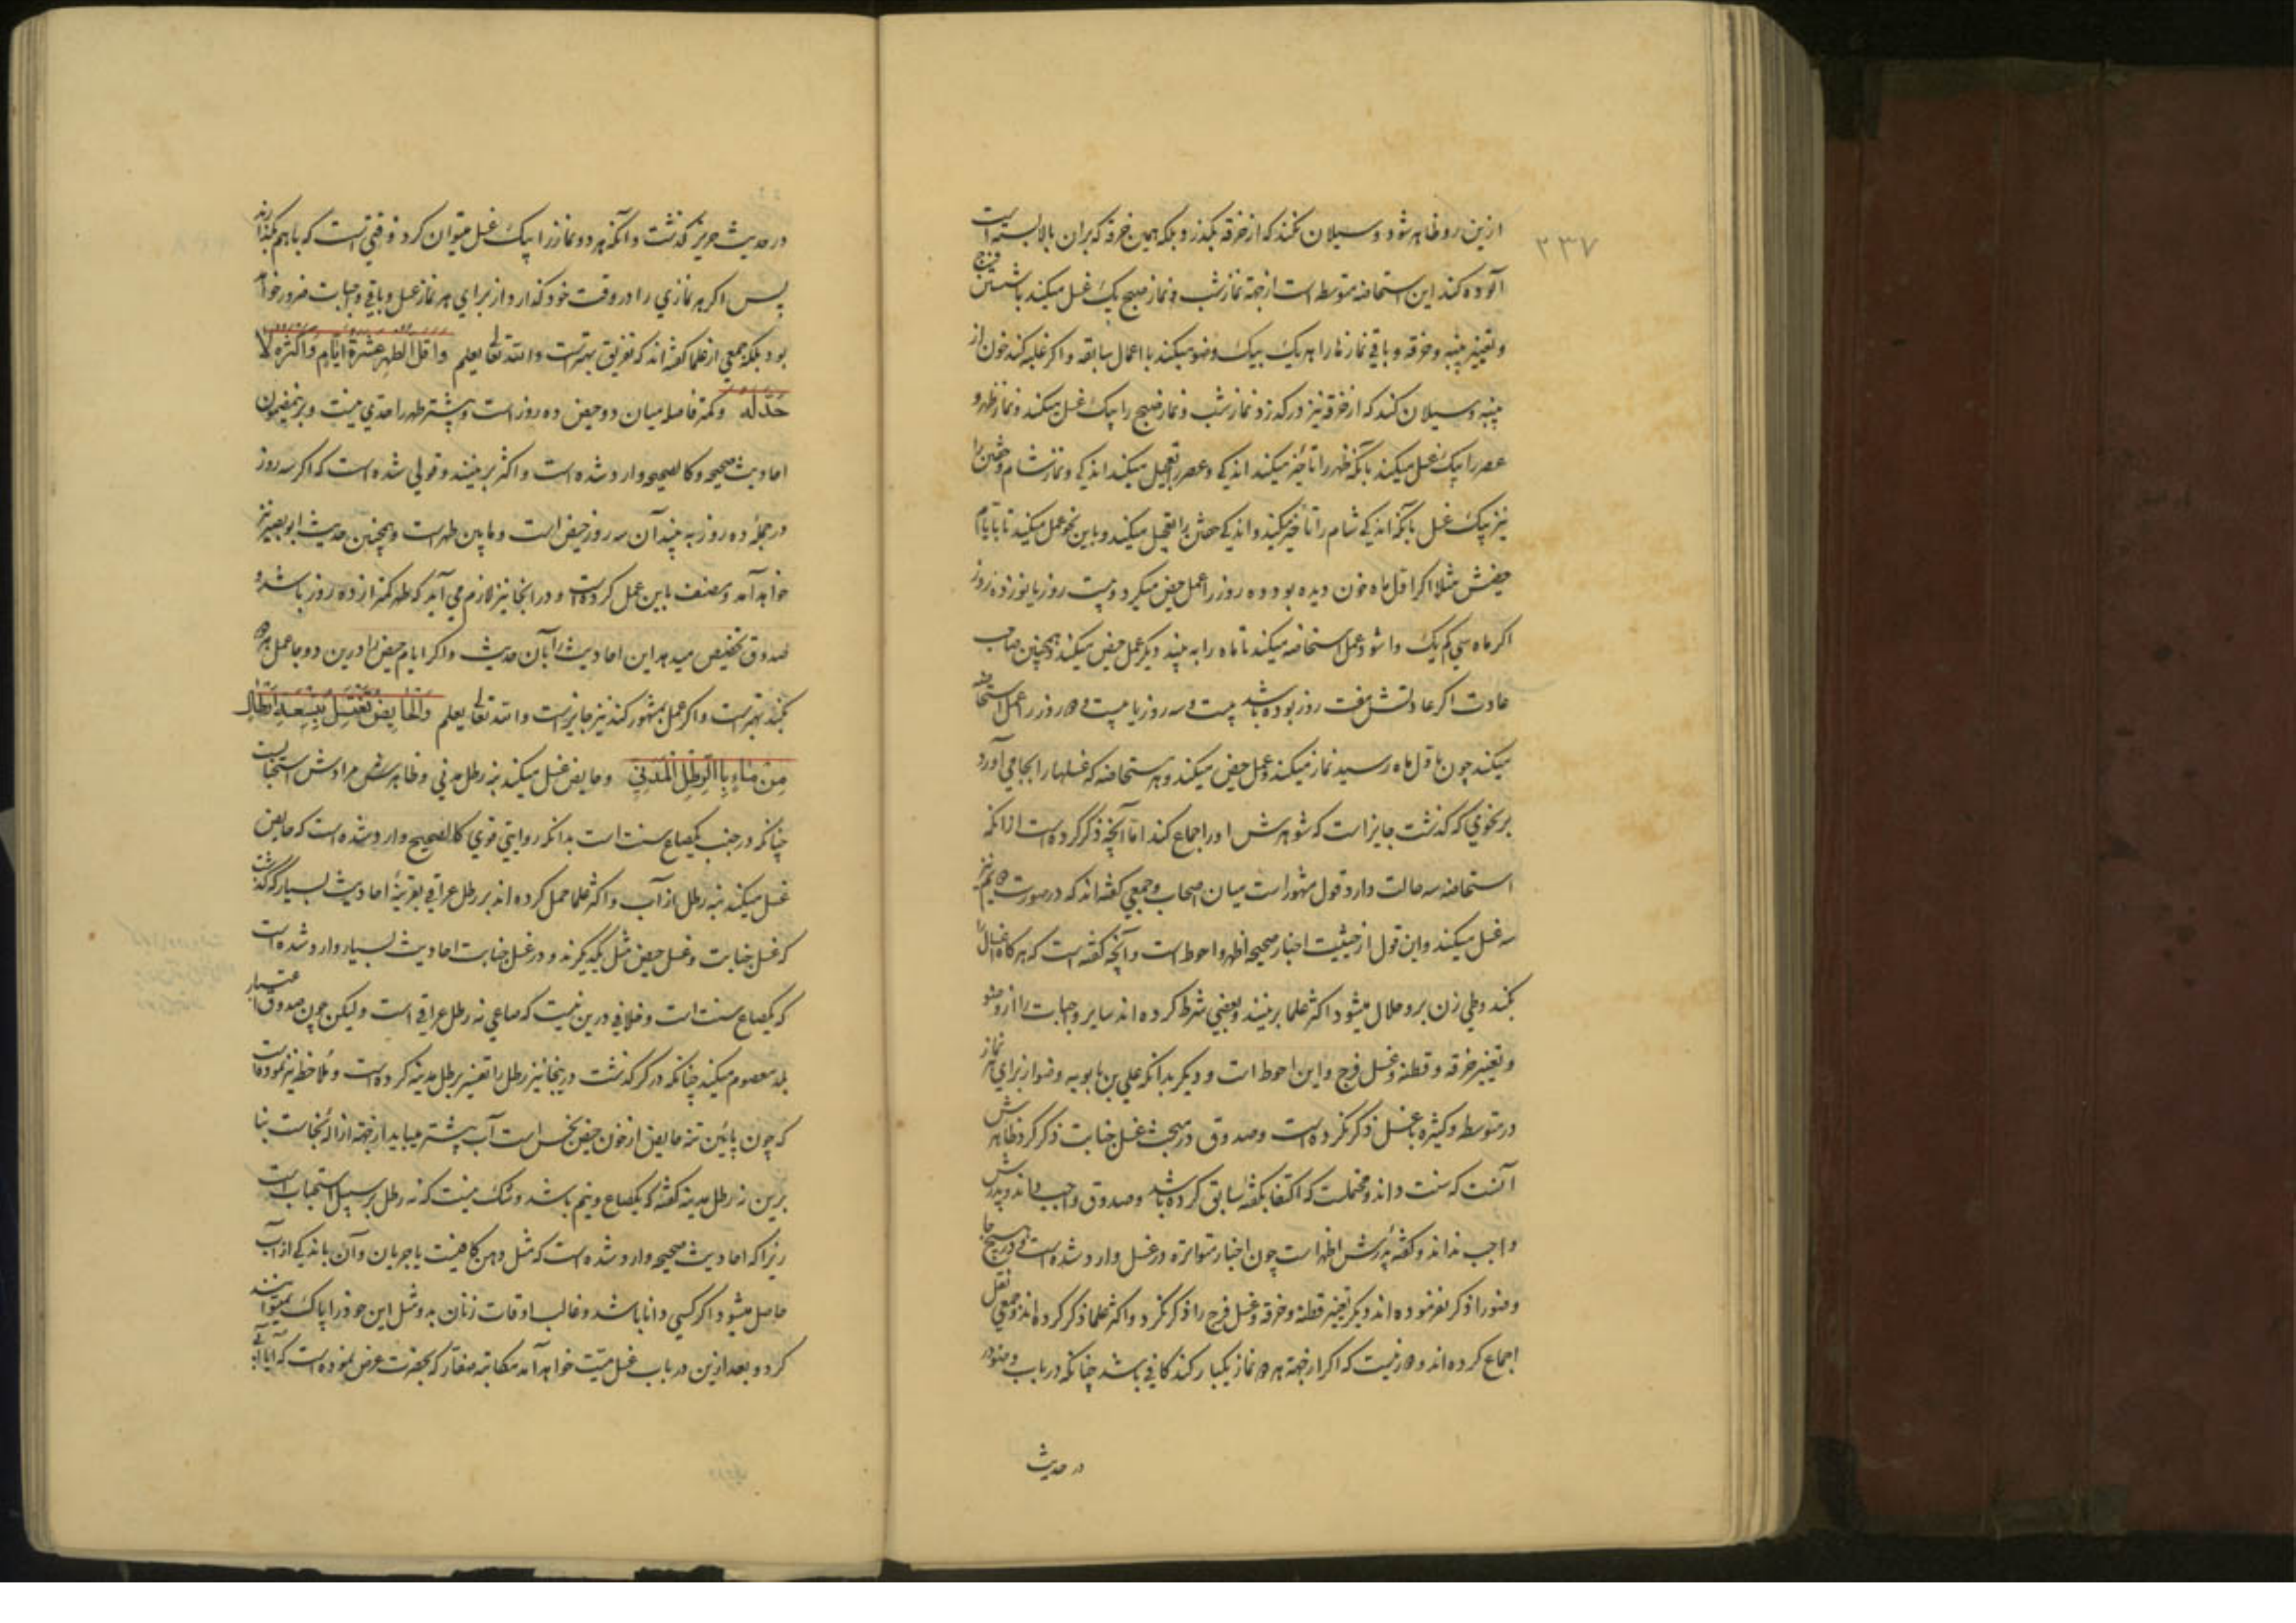 ۲۳۷
ازین رو ظاهر شود و سیلان نکند که از خرقه بگذرد و بلکه همین خرقه که بران بالا بسته است
آلوده کند این استحاضه متوسطه است از جهة نماز شب و نماز صبح یک غسل میکند با شستن فرج
و تغییر پنبه و خرقه و باقی نمازها را هر یک بیک وضو میکند با اعمال سابقه و اگر غلبه کند خون از
پنبه و سیلان کند که از خرقه نیز در گذرد نماز شب و نماز صبح را بیک غسل میکند و نماز ظهر و
عصر را بیک غسل میکند بآنکه ظهر را تأخیر میکند اندکی و عصر را تعجیل میکند اندکی و نماز شام و خفتن را
نیز بیک غسل بآنکه اندکی شام را تأخیر میکند و اندکی خفتن را تعجیل میکند و باین نحو عمل میکند تا بایام
حیضش مثلا اگر اول ماه خون دیده بود و ده روز را عمل حیض میکرد و بیست روز یا نوزده روز
اگر ماه سی کم یک واشود عمل استحاضه میکند تا ماه را به بیند دیگر عمل حیض میکند و همچنین صاحب
عادت اگر عادتش هفت روز بوده باشد بیست و سه روز یا بیست و دو روز را عمل استحاضه
میکند چون باول ماه رسید نماز نمیکند و عمل حیض میکند و هر مستحاضه که غسلها را بجا می‌آورد
بر نحوی که گذشت جایز است که شوهرش او را جماع کند اما آنچه ذکر کرده است از آنکه
استحاضه سه حالت دارد قول مشهور است میان اصحاب و جمعی گفته‌اند که در صورت دویم نیز
سه غسل میکند و این قول از حیثیت اخبار صحیحه اظهر و احوط است و آنچه گفته است که هر گاه اغسال را
بکند وطی زن برو حلال میشود اکثر علما برینند و بعضی شرط کرده اند سایر واجبات را از وضو
و تغییر خرقه و قطنه و غسل فرج و این احوط است و دیگر بدانکه علی بن بابویه وضو از برای هر نماز
در متوسطه و کثیره با غسل ذکر نکرده است و صدوق در مبحث غسل جنابت ذکر کرد ظاهرش
آنست که سنت داند و محتملست که اکتفا بگفته سابق کرده باشد و صدوق واجب داند و پدرش
واجب نداند و گفته پدرش اظهر است چون اخبار متواتره در غسل وارد شده است و در هیچ جا
وضو را ذکر نفرموده اند دیگر تغییر قطنه و خرقه و غسل فرج را ذکر نکرد و اکثر علما ذکر کرده اند و جمعی نقل
اجماع کرده اند و دور نیست که اگر از جهة هر دو نماز یکبار کند کافی باشد چنانکه در باب وضو در
در حدیث
در حدیث حریز گذشت و آنکه هر دو نماز را بیک غسل میتوان کرد و وقتی است که باهم بگذارند
پس اگر هر نمازی را در وقت خود گذارد از برای هر نماز غسل و باقی واجبات ضرور خواهد
بود بلکه جمعی از علما گفته‌اند که تفریق بهتر است والله تعالی یعلم وَاَقَلُّ الطُّهْرِ عَشَرَةُ اَیّامٍ وَاَکْثَرُهُ لا
حَدَّ لَهُ و کمتر فاصله میان دو حیض ده روز است و بیشتر طهر را حدی نیست و برینمضمون
احادیث صحیحه و کالصحیحه وارد شده است و اکثر برینند و قولی شده است که اگر سه روز
در جملهٔ ده روز به بیند آن سه روز حیض است و مابین طهر است و همچنین حدیث ابو بصیر نیز
خواهد آمد و مصنف باین عمل کرده است و در اینجا نیز لازم می آید که طهر کمتر از ده روز باشد و
صدوق تخصیص میدهد این احادیث را بآن حدیث و اگر ایام حیض را درین دو جا عمل هر دو
بکند بهتر است و اگر عمل بمشهور کند نیز جایز است والله تعالی یعلم وَالْحائِضُ تَغْتَسِلُ بِتِسْعَةِ اَرْطالٍ
مِنْ ماءٍ بِالرِّطْلِ الْمَدَنِیِّ و حایض غسل میکند بنه رطل مدنی و ظاهرش مرادش استحبابست
چنانکه در جنب یکصاع سنت است بدانکه روایتی قوی کالصحیح وارد شده است که حایض
غسل میکند بنه رطل از آب و اکثر علما حمل کرده اند بر رطل عراقی بقرینهٔ احادیث بسیار که گذشت
که غسل جنابت و غسل حیض مثل یکدیگرند و در غسل جنابت احادیث بسیار وارد شده است
که یکصاع سنت است و خلافی درین نیست که صاعی نه رطل عراقی است و لیکن چون صدوق اعتبار
بلد معصوم میکند چنانکه در کر گذشت در اینجا نیز رطل را تفسیر برطل مدینه کرده است و ملاحظه نیز نموده است
که چون پائین تنه حایض از خون حیض نجس است آب بیشتر میباید از جهة ازالهٔ نجاست بنا
برین نه رطل مدینه گفته که یکصاع و نیم باشد و شک نیست که نه رطل بر سبیل استحباب است
زیرا که احادیث صحیحه وارد شده است که مثل دهن کافیست با جریان و آن باندکی از آب
حاصل میشود اگر کسی دانا باشد و غالب اوقات زنان بدو مثل این خود را پاک نمیتوانند
کرد و بعد ازین در باب غسل میّت خواهد آمد مکاتبه صفار که بحضرت عرض نموده است که آیا آبی